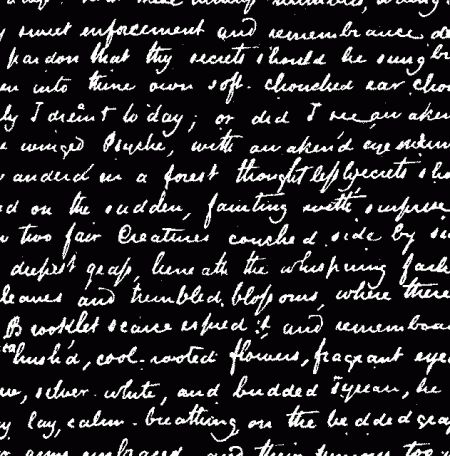 y sweet enforcement and remembrance de
pardon that thy secrets should be sung
en into thine own soft-chonched ear
ly I dreamt to day; or did I see awaken
e winged Psyche, with awaken'd eyes
wander'd in a forest thoughtlessly secrets sho
ed on the sudden, fainting with surprise
w two fair Creatures couched side by si
deepest grass, beneath the whispering
leaves and trembled blossoms, where there
Brooklet scarce espied: and remembran
hush'd, cool-rooted flowers, fragrant eyed
ue, silver-white, and budded Tyrian, he
ey lay, calm-breathing on the bedded gras